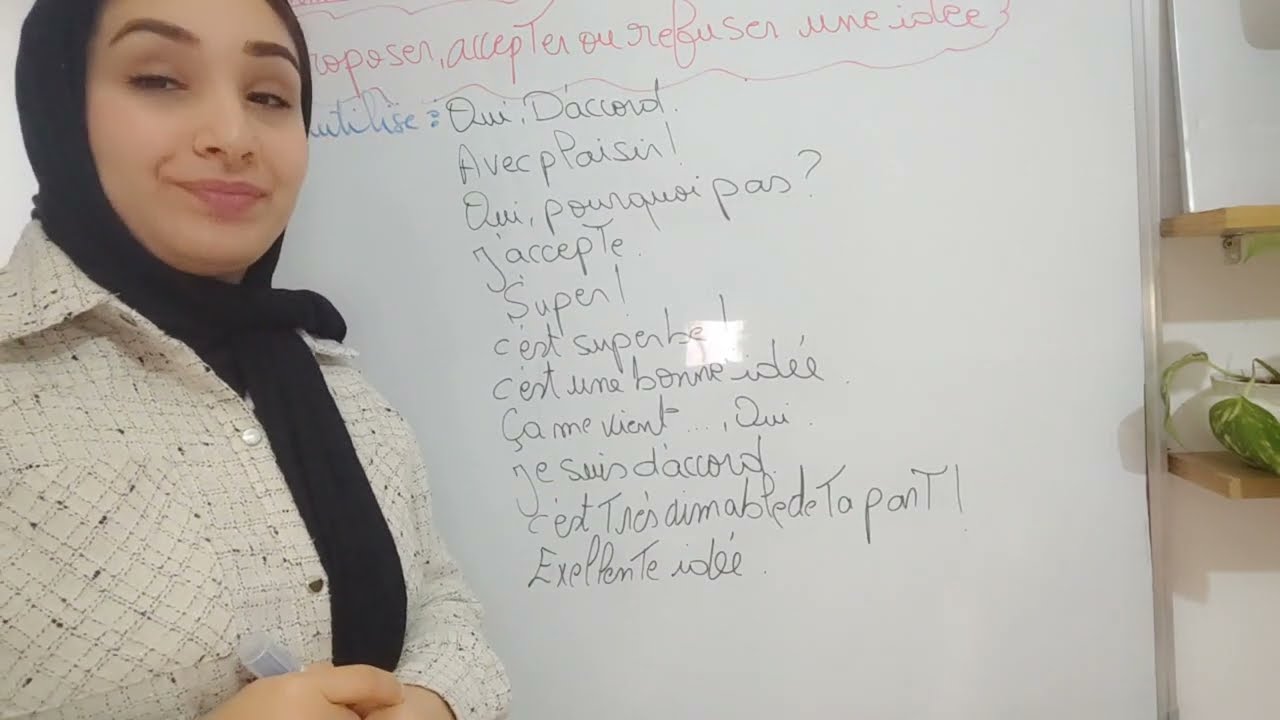 roposer, accepter ou refuser une idée
utilise: Oui, D'accord.
Avec plaisir!
Oui, pourquoi pas?
j'accepte.
Super!
c'est superbe!
c'est une bonne idée.
Ça me vient ...., Oui.
Je suis d'accord.
c'est Très aimable de Ta parT!
ExellenTe idée.